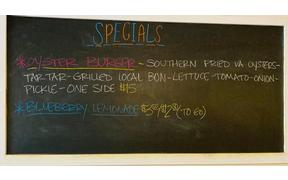 SPECIALS
*OYSTER BURGER ~ SOUTHERN FRIED VA OYSTERS-
TARTAR-GRILLED LOCAL BON-LETTUCE-TOMATO-ONION-
PICKLE-ONE SIDE $15
*BLUEBERRY LEMONADE $3.50/$2.00 (TO GO)